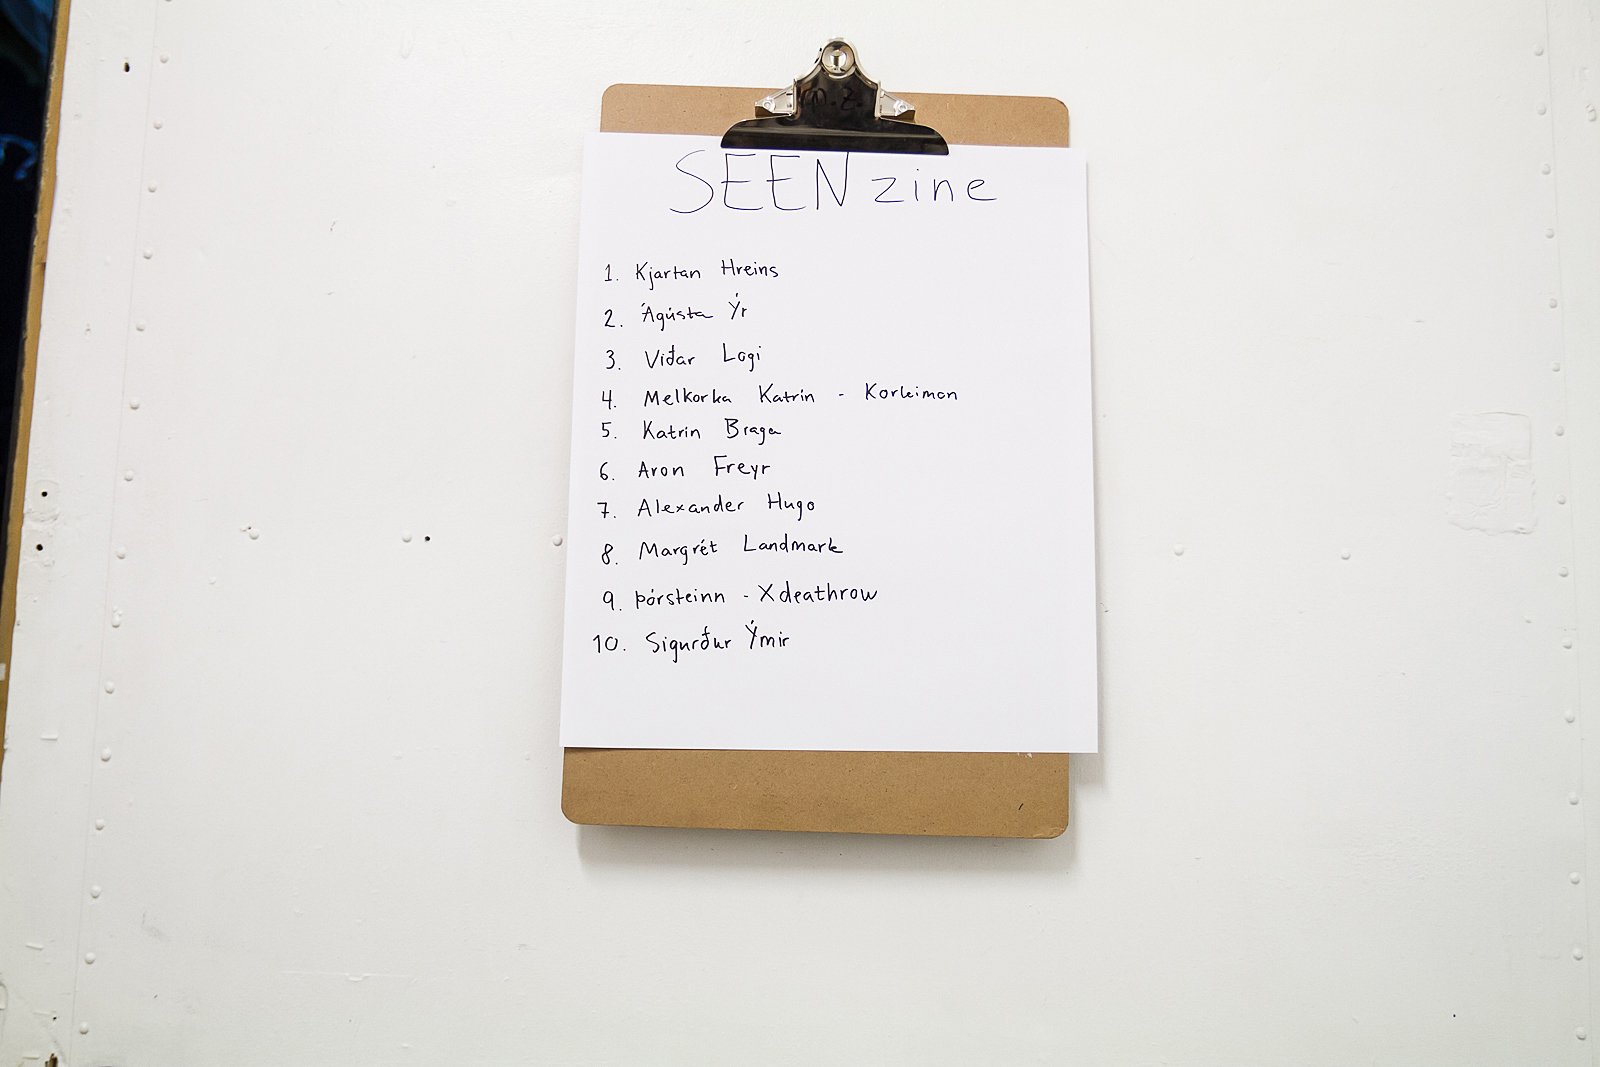 SEEN zine
1. Kjartan Hreins
2. Ágústa Ýr
3. Viðar Logi
4. Melkorka Katrín - Korkimon
5. Katrín Braga
6. Aron Freyr
7. Alexander Hugo
8. Margrét Landmark
9. Þórsteinn - Xdeathrow
10. Sigurður Ýmir